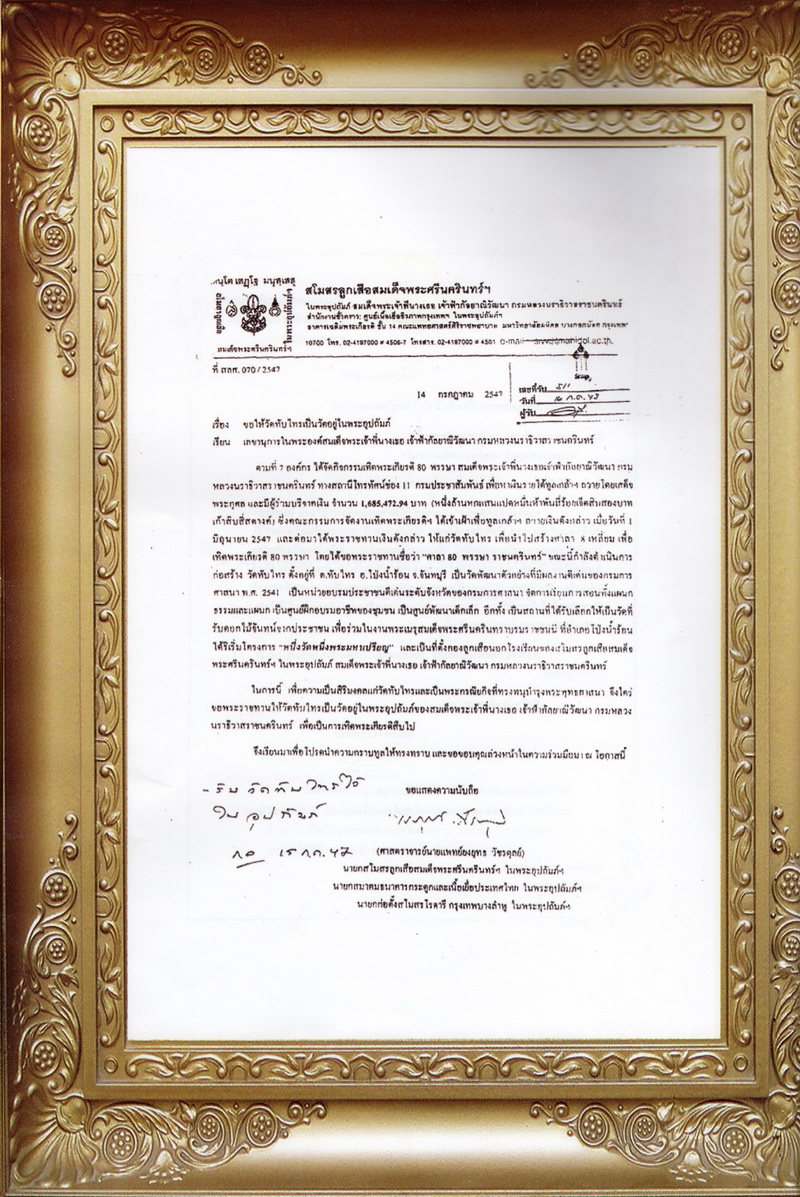 มนุสฺเสสุ
สโมสรลูกเสือสมเด็จพระศรีนครินทร์ฯ
ในพระอุปถัมภ์ สมเด็จพระเจ้าพี่นางเธอ เจ้าฟ้ากัลยาณิวัฒนา กรมหลวงนราธิวาสราชนครินทร์
สำนักงานชั่วคราว: ศูนย์เนื้อเยื่อชีวภาพกรุงเทพฯ ในพระอุปถัมภ์ฯ
อาคารเฉลิมพระเกียรติ ชั้น 14 คณะแพทยศาสตร์ศิริราชพยาบาล มหาวิทยาลัยมหิดล บางกอกน้อย กรุงเทพฯ
สมเด็จพระศรีนครินทร์ฯ
10700 โทร. 02-4197000 # 4506-7 โทรสาร. 02-4197000 # 4501
ที่ สลศ. 070/2547
14 กรกฎาคม 2547
เลขที่รับ 511
วันที่
ผู้รับ
เรื่อง ขอให้วัดทับไทรเป็นวัดอยู่ในพระอุปถัมภ์
เรียน เลขานุการในพระองค์สมเด็จพระเจ้าพี่นางเธอ เจ้าฟ้ากัลยาณิวัฒนา กรมหลวงนราธิวาสราชนครินทร์
ตามที่ 7 องค์กร ได้จัดกิจกรรมเทิดพระเกียรติ 80 พรรษา สมเด็จพระเจ้าพี่นางเธอเจ้าฟ้ากัลยาณิวัฒนา กรม
หลวงนราธิวาสราชนครินทร์ ทางสถานีโทรทัศน์ช่อง 11 กรมประชาสัมพันธ์ เพื่อหาเงินรายได้ทูลเกล้าฯ ถวายโดยเสด็จ
พระกุศล และมีผู้ร่วมบริจาคเงิน จำนวน 1,685,472.94 บาท (หนึ่งล้านหกแสนแปดหมื่นห้าพันสี่ร้อยเจ็ดสิบสองบาท
เก้าสิบสี่สตางค์) ซึ่งคณะกรรมการจัดงานเทิดพระเกียรติฯ ได้เข้าเฝ้าเพื่อทูลเกล้าฯ ถวายเงินดังกล่าว เมื่อวันที่ 1
มิถุนายน 2547 และต่อมาได้พระราชทานเงินดังกล่าว ให้แก่วัดทับไทร เพื่อนำไปสร้างศาลา 8 เหลี่ยม เพื่อ
เทิดพระเกียรติ 80 พรรษา โดยได้ขอพระราชทานชื่อว่า “ศาลา 80 พรรษา ราชนครินทร์” ขณะนี้กำลังดำเนินการ
ก่อสร้าง วัดทับไทร ตั้งอยู่ที่ ต.ทับไทร อ.โป่งน้ำร้อน จ.จันทบุรี เป็นวัดพัฒนาตัวอย่างที่มีผลงานดีเด่นของกรมการ
ศาสนา พ.ศ. 2541 เป็นหน่วยอบรมประชาชนดีเด่นระดับจังหวัดของกรมการศาสนา จัดการเรียนการสอนทั้งแผนก
ธรรมและแผนก เป็นศูนย์ฝึกอบรมอาชีพของชุมชน เป็นศูนย์พัฒนาเด็กเล็ก อีกทั้ง เป็นสถานที่ได้รับเลือกให้เป็นวัดที่
รับดอกไม้จันทน์จากประชาชน เพื่อร่วมในงานพระเมรุสมเด็จพระศรีนครินทราบรมราชชนนี ที่อำเภอโป่งน้ำร้อน
ได้ริเริ่มโครงการ “หนึ่งวัดหนึ่งพระมหาเปรียญ” และเป็นที่ตั้งกองลูกเสือนอกโรงเรียนของสโมสรลูกเสือสมเด็จ
พระศรีนครินทร์ฯ ในพระอุปถัมภ์ สมเด็จพระเจ้าพี่นางเธอ เจ้าฟ้ากัลยาณิวัฒนา กรมหลวงนราธิวาสราชนครินทร์
ในการนี้ เพื่อความเป็นสิริมงคลแก่วัดทับไทรและเป็นพระกรณียกิจที่ทรงทนุบำรุงพระพุทธศาสนา จึงใคร่
ขอพระราชทานให้วัดทับไทรเป็นวัดอยู่ในพระอุปถัมภ์ของสมเด็จพระเจ้าพี่นางเธอ เจ้าฟ้ากัลยาณิวัฒนา กรมหลวง
นราธิวาสราชนครินทร์ เพื่อเป็นการเทิดพระเกียรติสืบไป
จึงเรียนมาเพื่อโปรดนำความกราบทูลให้ทรงทราบ และขอขอบคุณล่วงหน้าในความร่วมมือมา ณ โอกาสนี้
- รับวัดทับไทรไว้
ในอุปถัมภ์
ขอแสดงความนับถือ
15 ก.ค. 47
(ศาสตราจารย์นายแพทย์ยงยุทธ วัชรดุลย์)
นายกสโมสรลูกเสือสมเด็จพระศรีนครินทร์ฯ ในพระอุปถัมภ์ฯ
นายกสมาคมธนาคารกระดูกและเนื้อเยื่อประเทศไทย ในพระอุปถัมภ์ฯ
นายกก่อตั้งสโมสรโรตารี กรุงเทพบางลำพู ในพระอุปถัมภ์ฯ